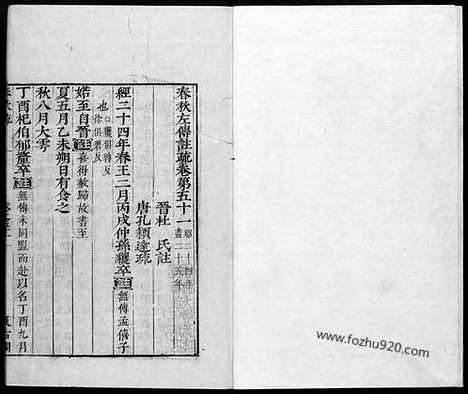 春秋左傳註疏卷第五十一 起二十四年盡二十五年
晉杜 氏註
唐孔穎達疏
經二十四年春王二月丙戌仲孫貜卒 無傳孟僖子
也○貜俱縛反
徐俱碧反
婼至自晉 喜得赦歸故書至
夏五月乙未朔日有食之
秋八月大雩
丁酉杞伯郁釐卒 無傳未同盟而赴以名丁酉九月
www.fozhu920.com